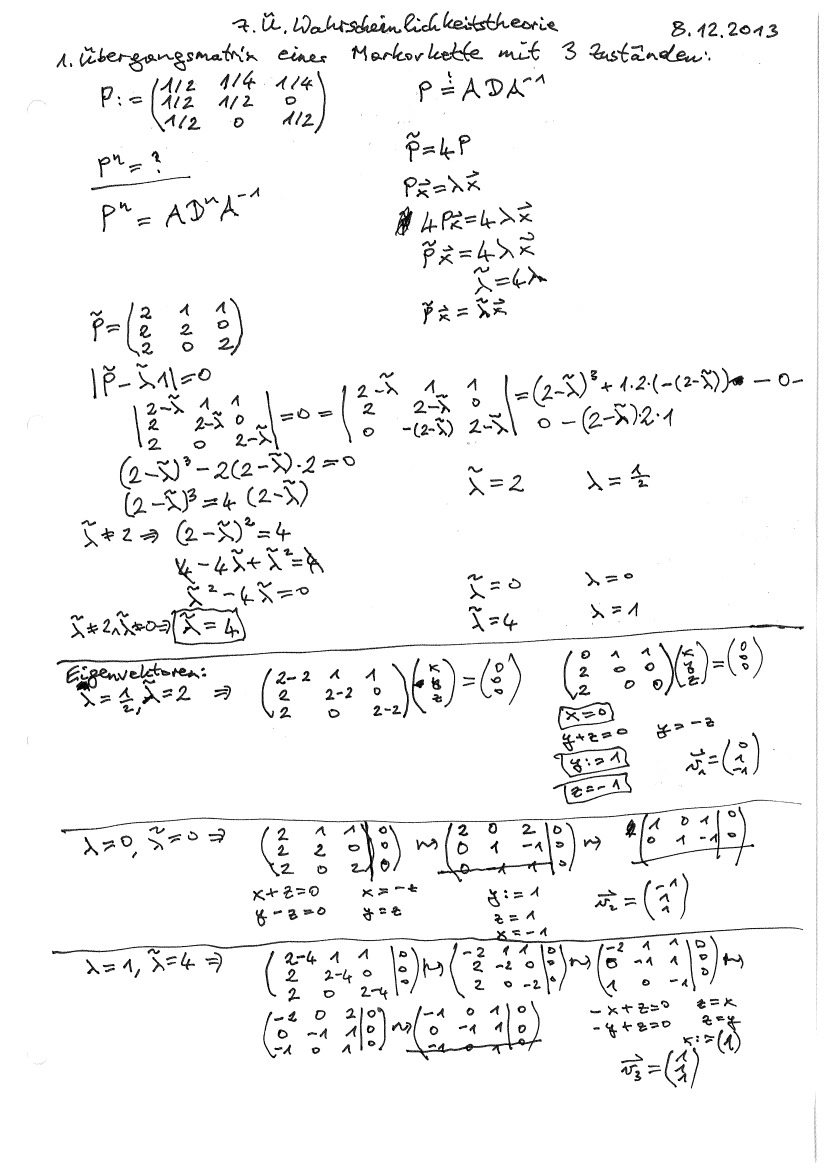 7. Ü. Wahrscheinlichkeitstheorie 8.12.2013
1. Übergangsmatrix einer Markovkette mit 3 Zuständen:
P := (1/2 1/4 1/4; 1/2 1/2 0; 1/2 0 1/2) P =! A D A⁻¹
P̃ = 4P
Pⁿ = ?
Px⃗ = λx⃗
Pⁿ = A Dⁿ A⁻¹
4Px⃗ = 4λx⃗
P̃x⃗ = 4λx⃗
λ̃ = 4λ
P̃ = (2 1 1; 2 2 0; 2 0 2) P̃x⃗ = λ̃x⃗
|P̃ - λ̃1| = 0
|2-λ̃ 1 1; 2 2-λ̃ 0; 2 0 2-λ̃| = 0 = |2-λ̃ 1 1; 2 2-λ̃ 0; 0 -(2-λ̃) 2-λ̃| = (2-λ̃)³ + 1·2·(-(2-λ̃)) - 0 -
0 - (2-λ̃)·2·1
(2-λ̃)³ - 2(2-λ̃)·2 = 0
(2-λ̃)³ = 4 (2-λ̃) λ̃ = 2 λ = 1/2
λ̃ ≠ 2 ⇒ (2-λ̃)² = 4
4 - 4λ̃ + λ̃² = 4
λ̃² - 4λ̃ = 0 λ̃ = 0 λ = 0
λ̃ ≠ 2, λ̃ ≠ 0 ⇒ λ̃ = 4 λ̃ = 4 λ = 1
Eigenvektoren:
λ = 1/2, λ̃ = 2 ⇒ (2-2 1 1; 2 2-2 0; 2 0 2-2) (x; y; z) = (0; 0; 0) (0 1 1; 2 0 0; 2 0 0) (x; y; z) = (0; 0; 0)
x = 0
y + z = 0 y = -z
y := 1 v⃗₁ = (0; 1; -1)
z = -1
λ = 0, λ̃ = 0 ⇒ (2 1 1 | 0; 2 2 0 | 0; 2 0 2 | 0) ⇝ (2 0 2 | 0; 0 1 -1 | 0; 0 -1 1 | 0) ⇝ (1 0 1 | 0; 0 1 -1 | 0)
x + z = 0 x = -z y := 1 v⃗₂ = (-1; 1; 1)
y - z = 0 y = z z = 1
x = -1
λ = 1, λ̃ = 4 ⇒ (2-4 1 1 | 0; 2 2-4 0 | 0; 2 0 2-4 | 0) ⇝ (-2 1 1 | 0; 2 -2 0 | 0; 2 0 -2 | 0) ⇝ (-2 1 1 | 0; 0 -1 1 | 0; 1 0 -1 | 0) ⇝
(-2 0 2 | 0; 0 -1 1 | 0; -1 0 1 | 0) ⇝ (-1 0 1 | 0; 0 -1 1 | 0; -1 0 1 | 0) -x + z = 0 z = x
-y + z = 0 z = y
x := (1)
v⃗₃ = (1; 1; 1)